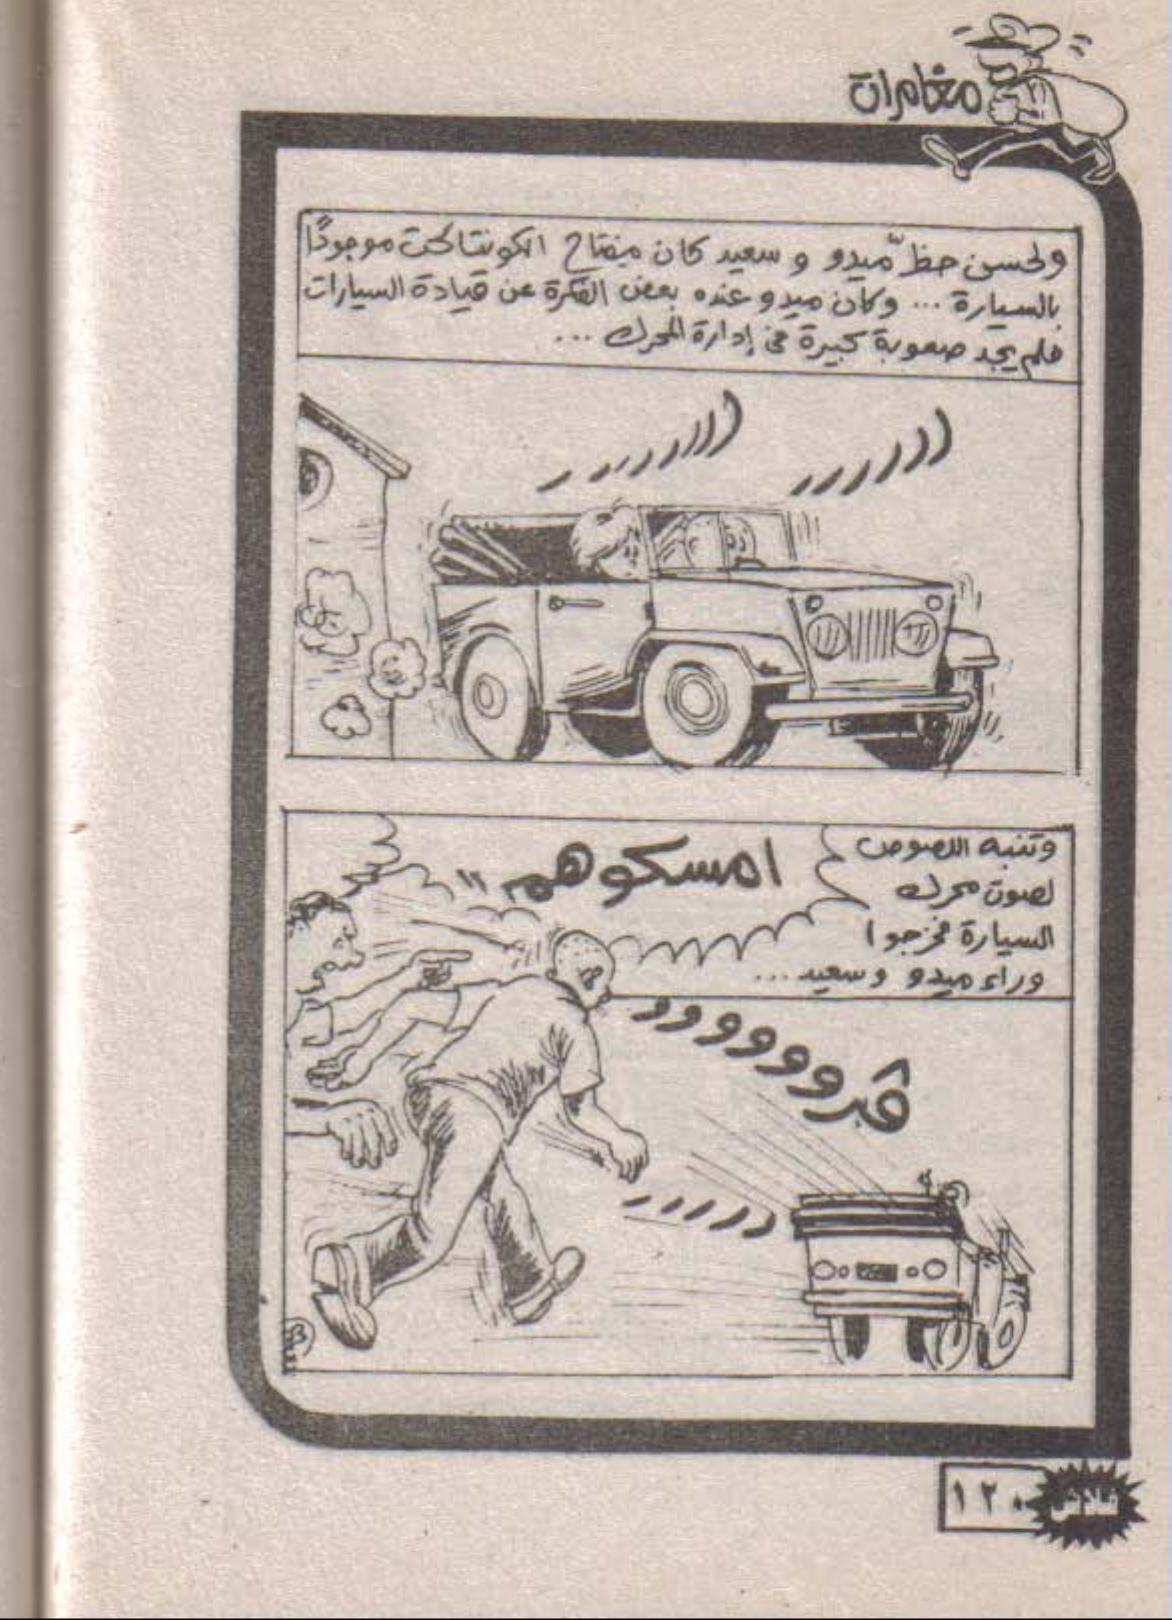 مغامرات
ولحسن حظّ ميدو و سعيد كان مفتاح الكونتاكت موجودًا
بالسيارة ... وكان ميدو عنده بعض الفكرة عن قيادة السيارات
فلم يجد صعوبة كبيرة في إدارة المحرك ...
وتنبه اللصوص
لصوت محرك
السيارة فخرجوا
وراء ميدو وسعيد ...
امسكوهم !!
ڤرووووووو
فلاش ١٢٠